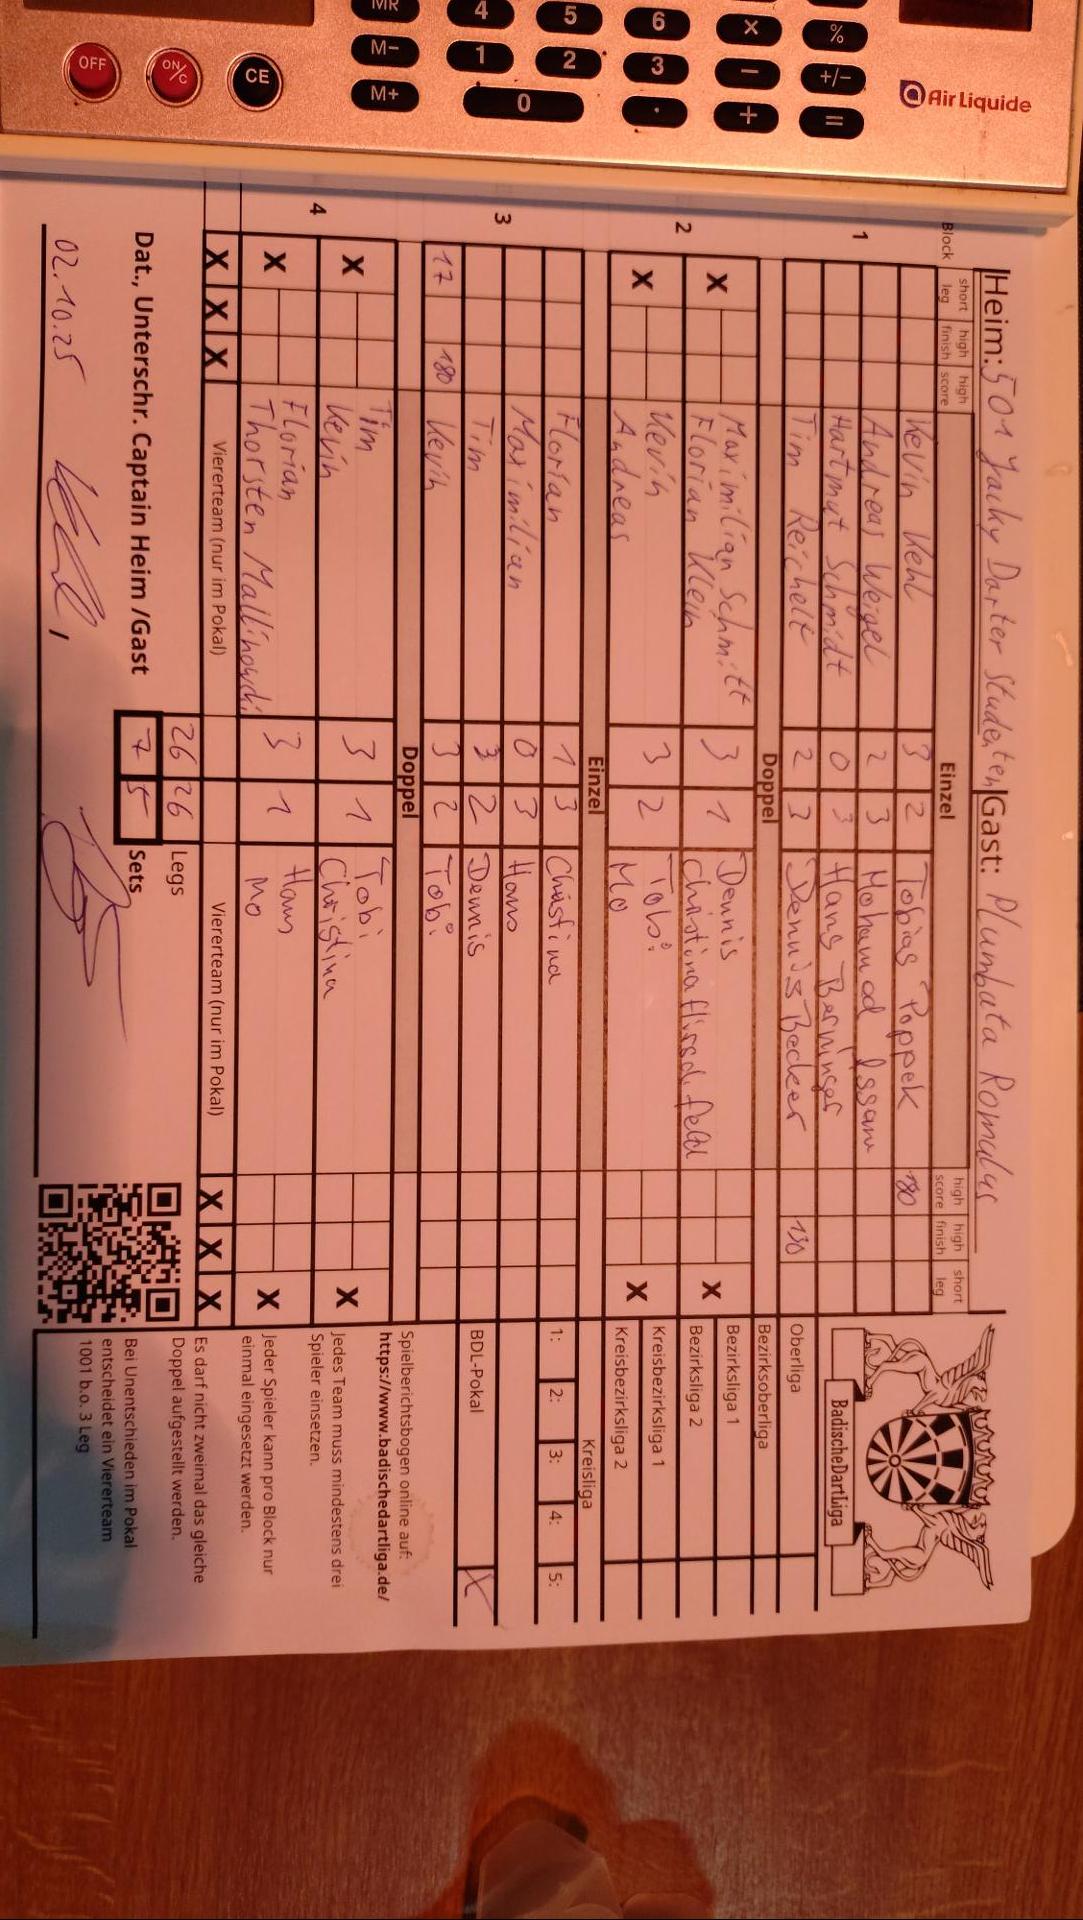 OFF
ON/C
CE
MR
M-
M+
4 5 6 × %
1 2 3 - +/-
0 . + =
Air Liquide
Heim: 501 Jacky Darter Studenten Gast: Plumbata Romulus
Block short leg high finish high score Einzel high score high finish short leg
1
Kevin Kehl 3 2 Tobias Poppek 180
Andreas Weigel 2 3 Mohamad Issam
Hartmut Schmidt 0 3 Hans Berninger
Tim Reichelt 2 3 Dennis Becker 130
Doppel
2
X Maximilian Schmitt 3 1 Dennis X
Florian Klein Christina Hirschfeld
X Kevin 3 2 Tobi X
Andreas Mo
Einzel
3
Florian 1 3 Christina
Maximilian 0 3 Hans
Tim 3 2 Dennis
17 180 Kevin 3 2 Tobi
Doppel
4
X Tim 3 1 Tobi X
Kevin Christina
X Florian 3 1 Hans X
Thorsten Mallinowski Mo
X X X Viererteam (nur im Pokal) Viererteam (nur im Pokal) X X X
26 26 Legs
Dat., Unterschr. Captain Heim /Gast 7 5 Sets
02.10.25
BadischeDartLiga
Oberliga
Bezirksoberliga
Bezirksliga 1
Bezirksliga 2
Kreisbezirksliga 1
Kreisbezirksliga 2
Kreisliga
1: 2: 3: 4: 5:
BDL-Pokal X
Spielberichtsbogen online auf:
https://www.badischedartliga.de/
Jedes Team muss mindestens drei
Spieler einsetzen.
Jeder Spieler kann pro Block nur
einmal eingesetzt werden.
Es darf nicht zweimal das gleiche
Doppel aufgestellt werden.
Bei Unentschieden im Pokal
entscheidet ein Viererteam
1001 b.o. 3 Leg